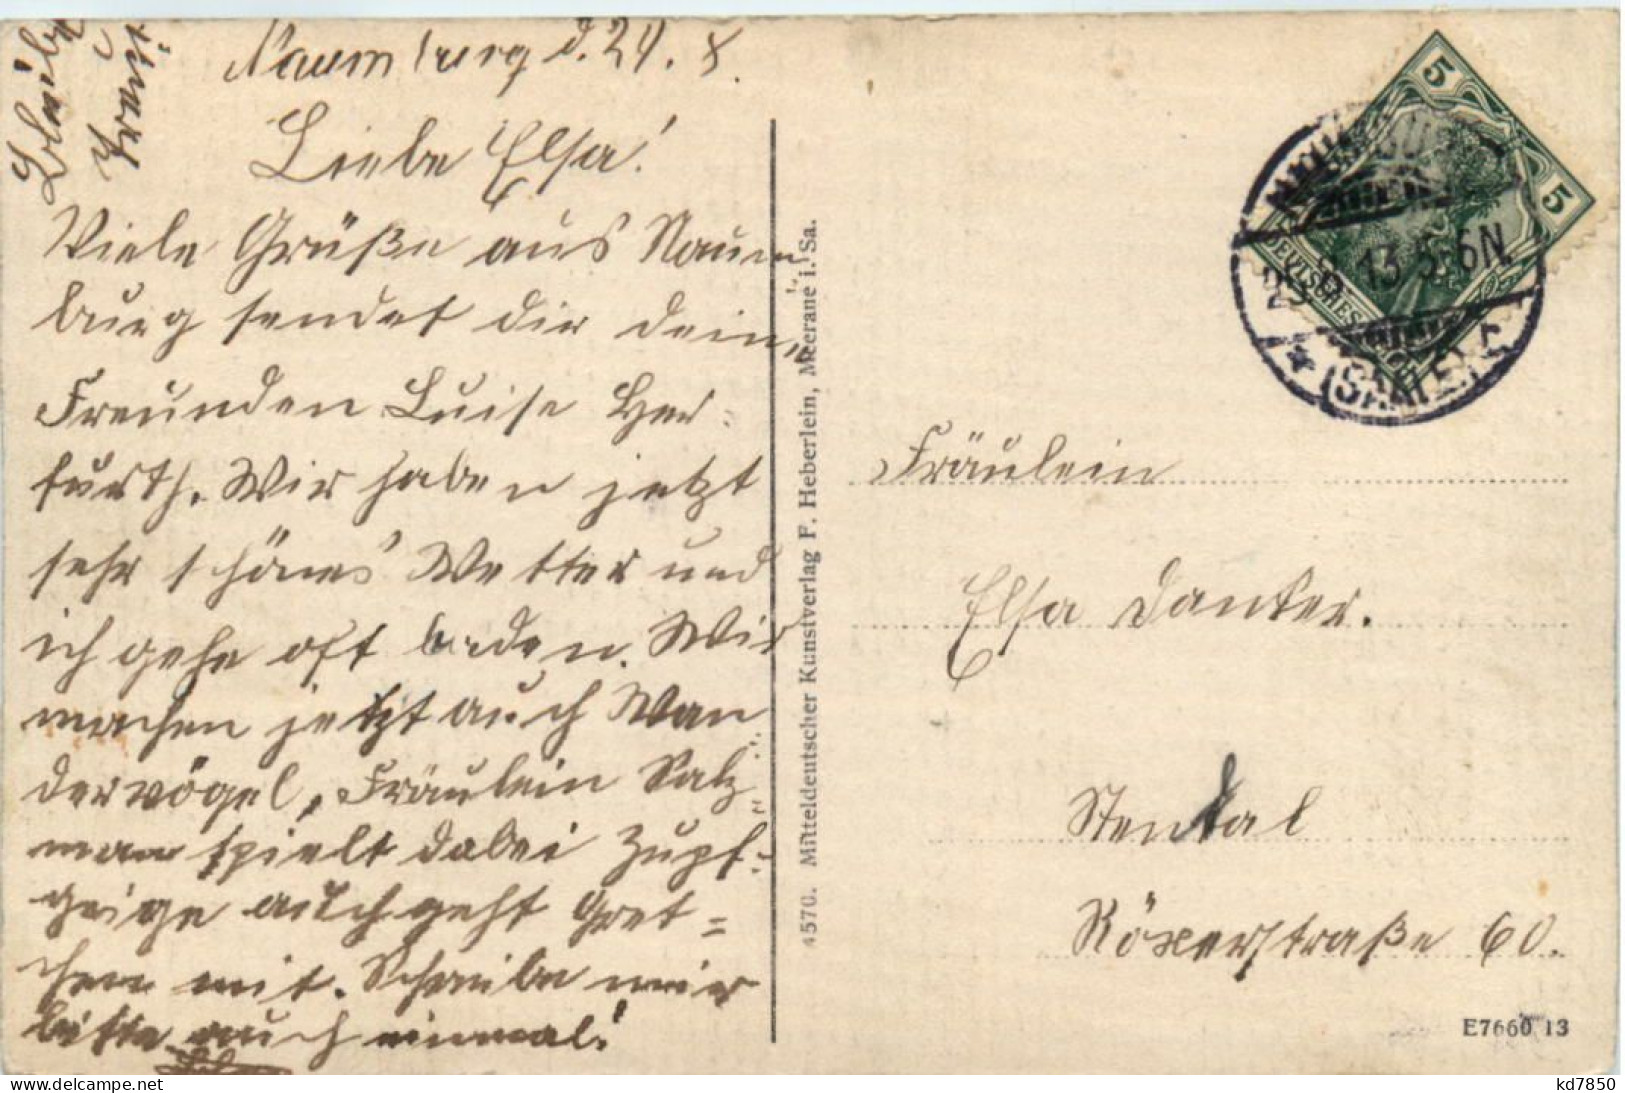 Naumburg d. 24. 8.
Liebe Elsa!
Viele Grüße aus Naum
burg sendet dir dein,,
Freunden Luise Her-
furth. Wir haben jetzt
sehr schönes Wetter und
ich gehe oft baden. Wir
machen jetzt auch Wan
dervögel, Fräulein Salz=
man spielt dabei Zupf=
geige auch geht Gret=
chen mit. Schreibe mir
bitte auch einmal!
4570. Mitteldeutscher Kunstverlag F. Heberlein, Meerane i. Sa.
5
5
DEUTSCHES
NAUMBURG
13 5-6N
* (SAALE)
Fräulein
Elsa Danker.
Stendal
Röxerstraße 60.
E7660 13
delcampe.net
kd7850